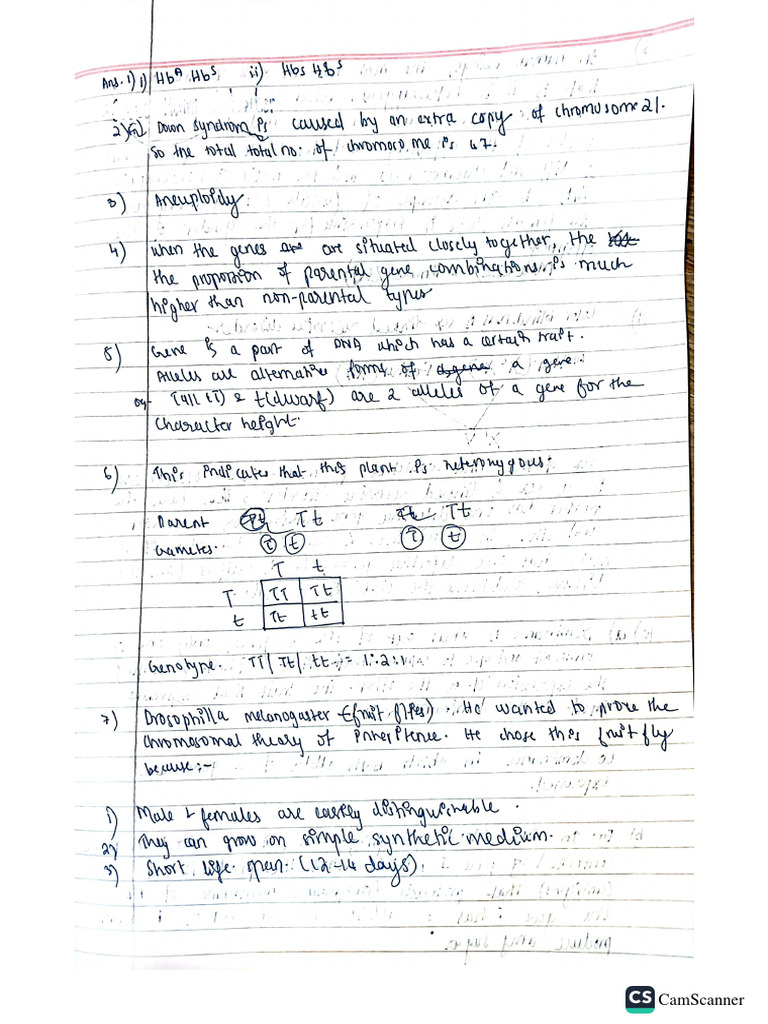 Ans. 1) i) Hb^A Hb^S ii) Hbs Hb^s
2) Down syndrom is caused by an extra copy of chromosome 21.
So the total total no. of chromosome is 47.
3) Aneuploidy
4) When the genes are are situated closely together, the
the proporsion of parental gene combinations is much
higher than non-parental types
5) Gene is a part of DNA which has a certain trait.
Alleles are alternative forms of a gene a gene.
eg- Tall (T) & t(dwarf) are 2 alleles of a gene for the
character height.
6) This indicates that this plant is heterozygous.
Parent Tt Tt Tt Tt
Gametes. T t T t
T t
T TT Tt
t Tt tt
Genotype. TT| Tt| tt := 1:2:1
7) Drosophilla melanogaster (fruit flies). He wanted to prove the
chromosomal theory of inheritence. He chose this fruit fly
because:-
1) Male & females are easily distinguishable.
2) They can grow on simple synthetic medium.
3) Short life span. (12-14 days)
CS CamScanner